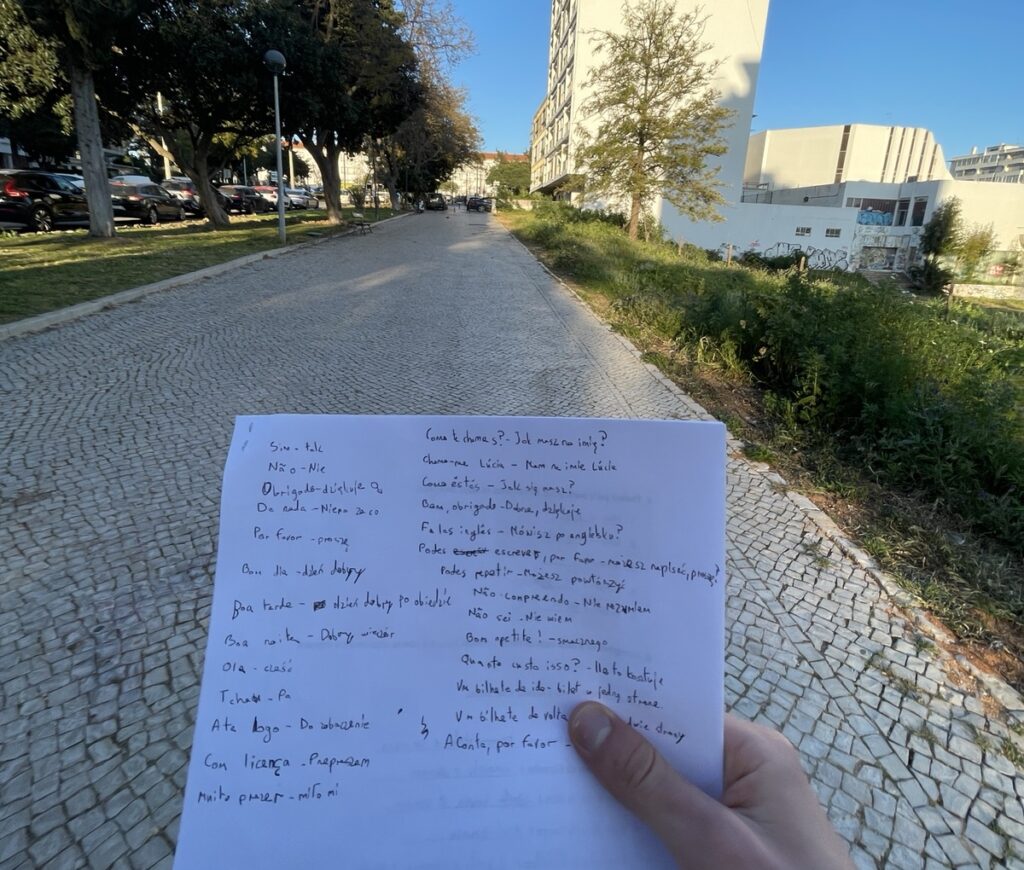 Sim - tak
Não - Nie
Obrigado - dziękuje
De nada - Niema za co
Por favor - proszę
Bom dia - dzień dobry
Boa tarde - dzień dobry po obiedzie
Boa noite - Dobry wieczór
Ola - cześć
Tchau - Pa
Ate logo - Do zobaczenia
Com licença - Przepraszam
Muito prazer - miło mi
Como te chamas? - Jak masz na imię?
Chamo-me Lúcia - Mam na imie Lúcia
Como éstés - Jak się masz?
Bem, obrigado - Dobrze, dziękuje
Falas inglés - Mówisz po angielsku?
Podes escrever, por favor - możesz napisać, proszę?
Podes repetir - Możesz powtórzyć
Não conpreendo - Nie rozumiem
Não sei - Nie wiem
Bom apetite! - smacznego
Quanto custo isso? - Ile to kosztuje
Um bilhete de ida - bilet w jedną strone
Um bilhete de volta dwie strony
A Conta, por favor -